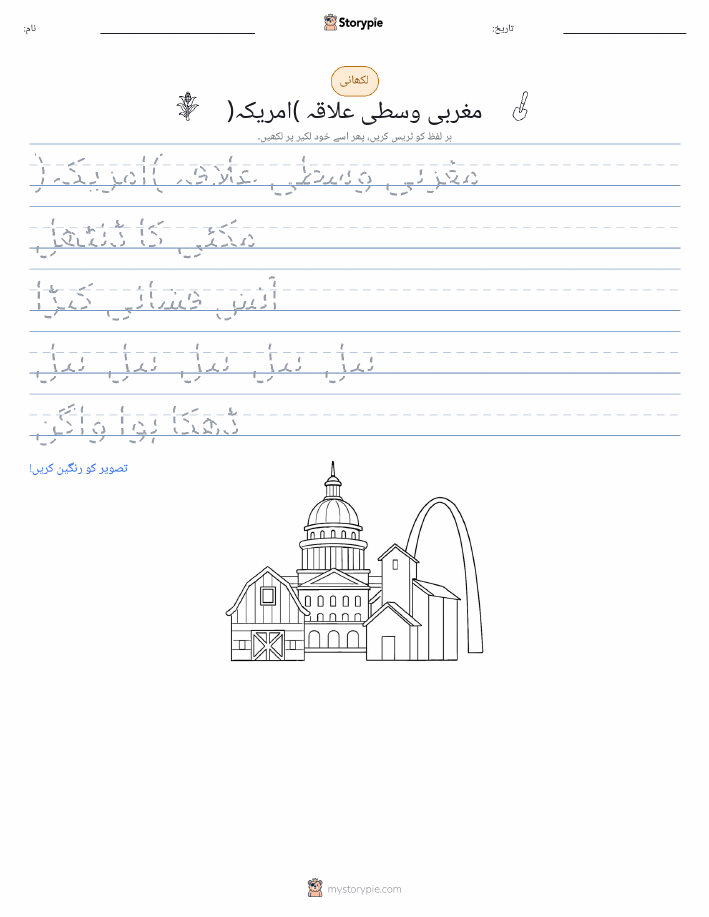 Storypie
نام:
تاریخ:
لکھائی
مغربی وسطی علاقہ )امریکہ(
ہر لفظ کو ٹریس کریں، پھر اسے خود لکیر پر لکھیں۔
مغربی وسطی علاقہ )امریکہ(
مکئی کا ڈنٹھل
آتش فشانی کڑا
نیل نیل نیل نیل نیل
ڈھکا ہوا واگن
تصویر کو رنگین کریں!
mystorypie.com